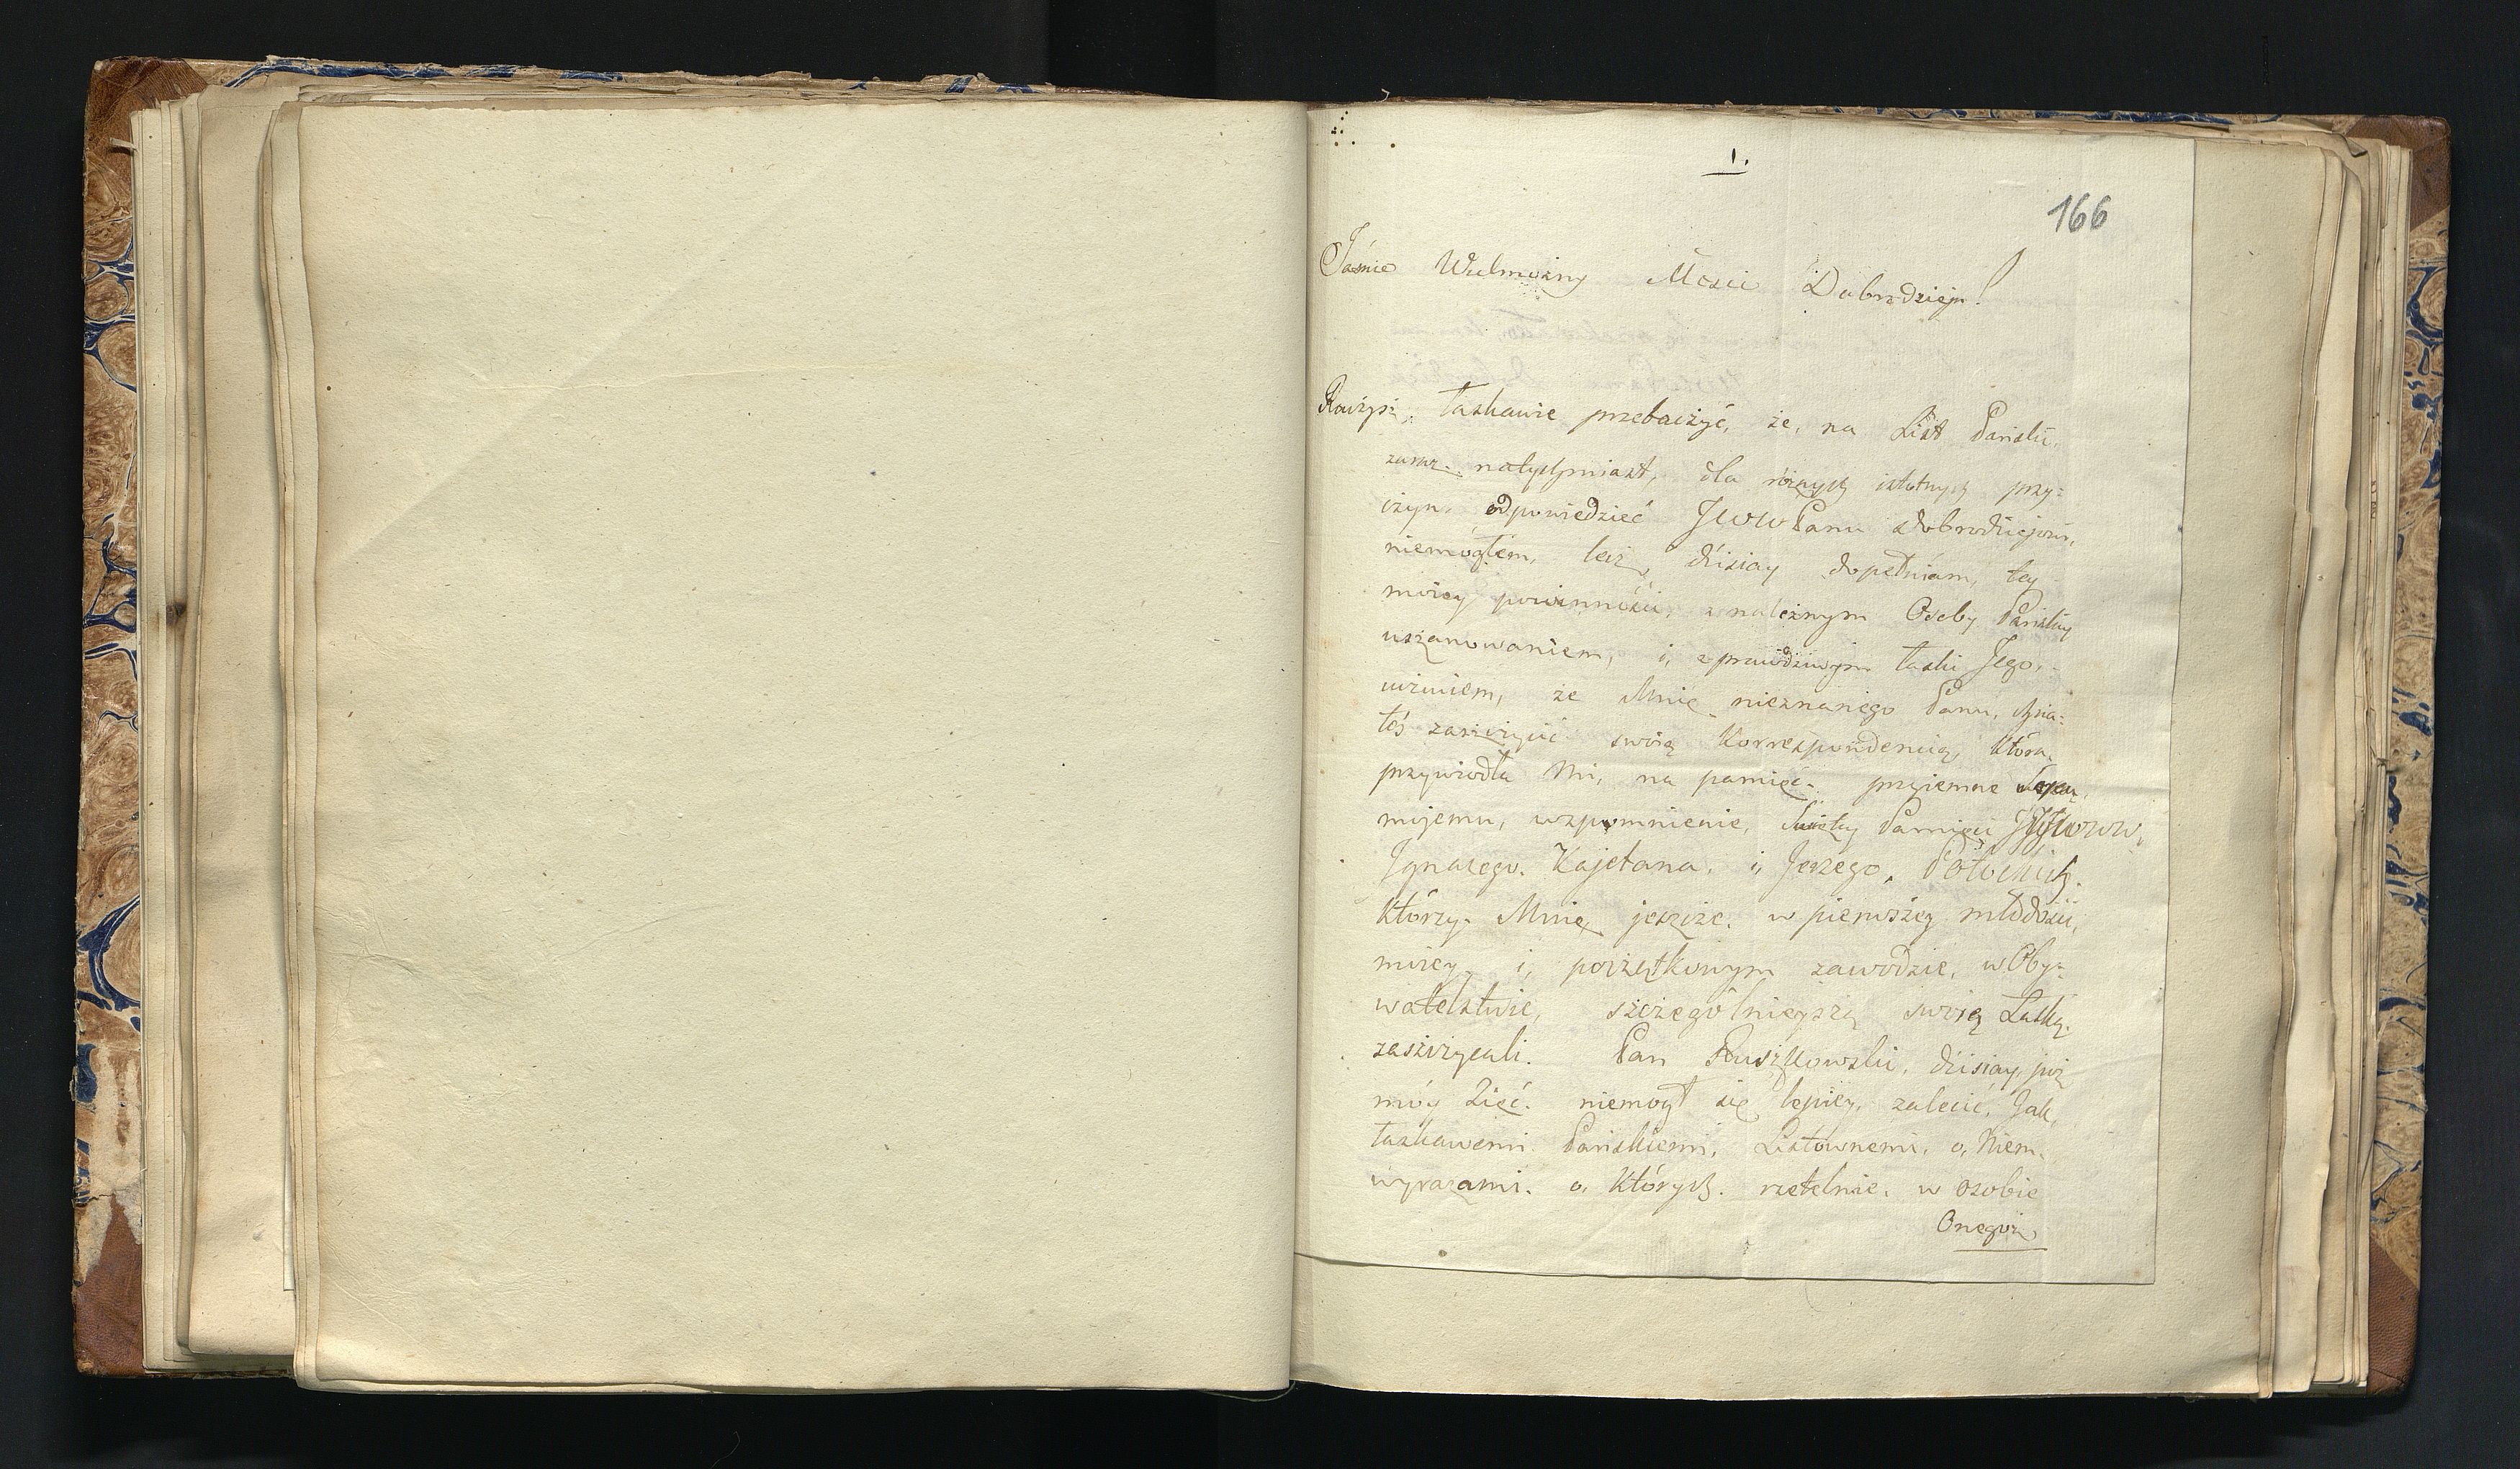 1.
166
Jaśnie Wielmożny Mości Dobrodzieju!
Raczysz, łaskawie przebaczyć, że, na List Pański,
zaraz natychmiast, dla różnych istotnych przy=
czyn, odpowiedzieć JWW Panu Dobrodziejowi,
niemogłem, lecz, dzisiay dopełniam, tey
moiey powinności, z należnym Osoby Pańskiey
uszanowaniem, i, z prawdziwym łaski Jego,
uczuciem, że Mnie nieznanego Panu,
łeś zaszczycić swoią Korrespondencyą, która,
przywiodła Mi, na pamięć. przyiemne Sercu,
mojemu, wspomnienie, Świętey Pamięci
Ignacego. Kajetana. i, Jerzego, Potockich.
którzy. Mnie jeszcze. w pierwszey młodości,
moiey, i, początkowym zawodzie, w Oby=
watelstwie, szczególnieyszą swoią Łaską.
zaszczycali. Pan Ruszkowski, dzisiay, już
móy Zięć. niemógł się lepiey, zalecić, Jak,
łaskawemi Pańskiemi, Listownemi, o, Niem.
wyrazami. o, których. rzetelnie, w osobie
Onegoż